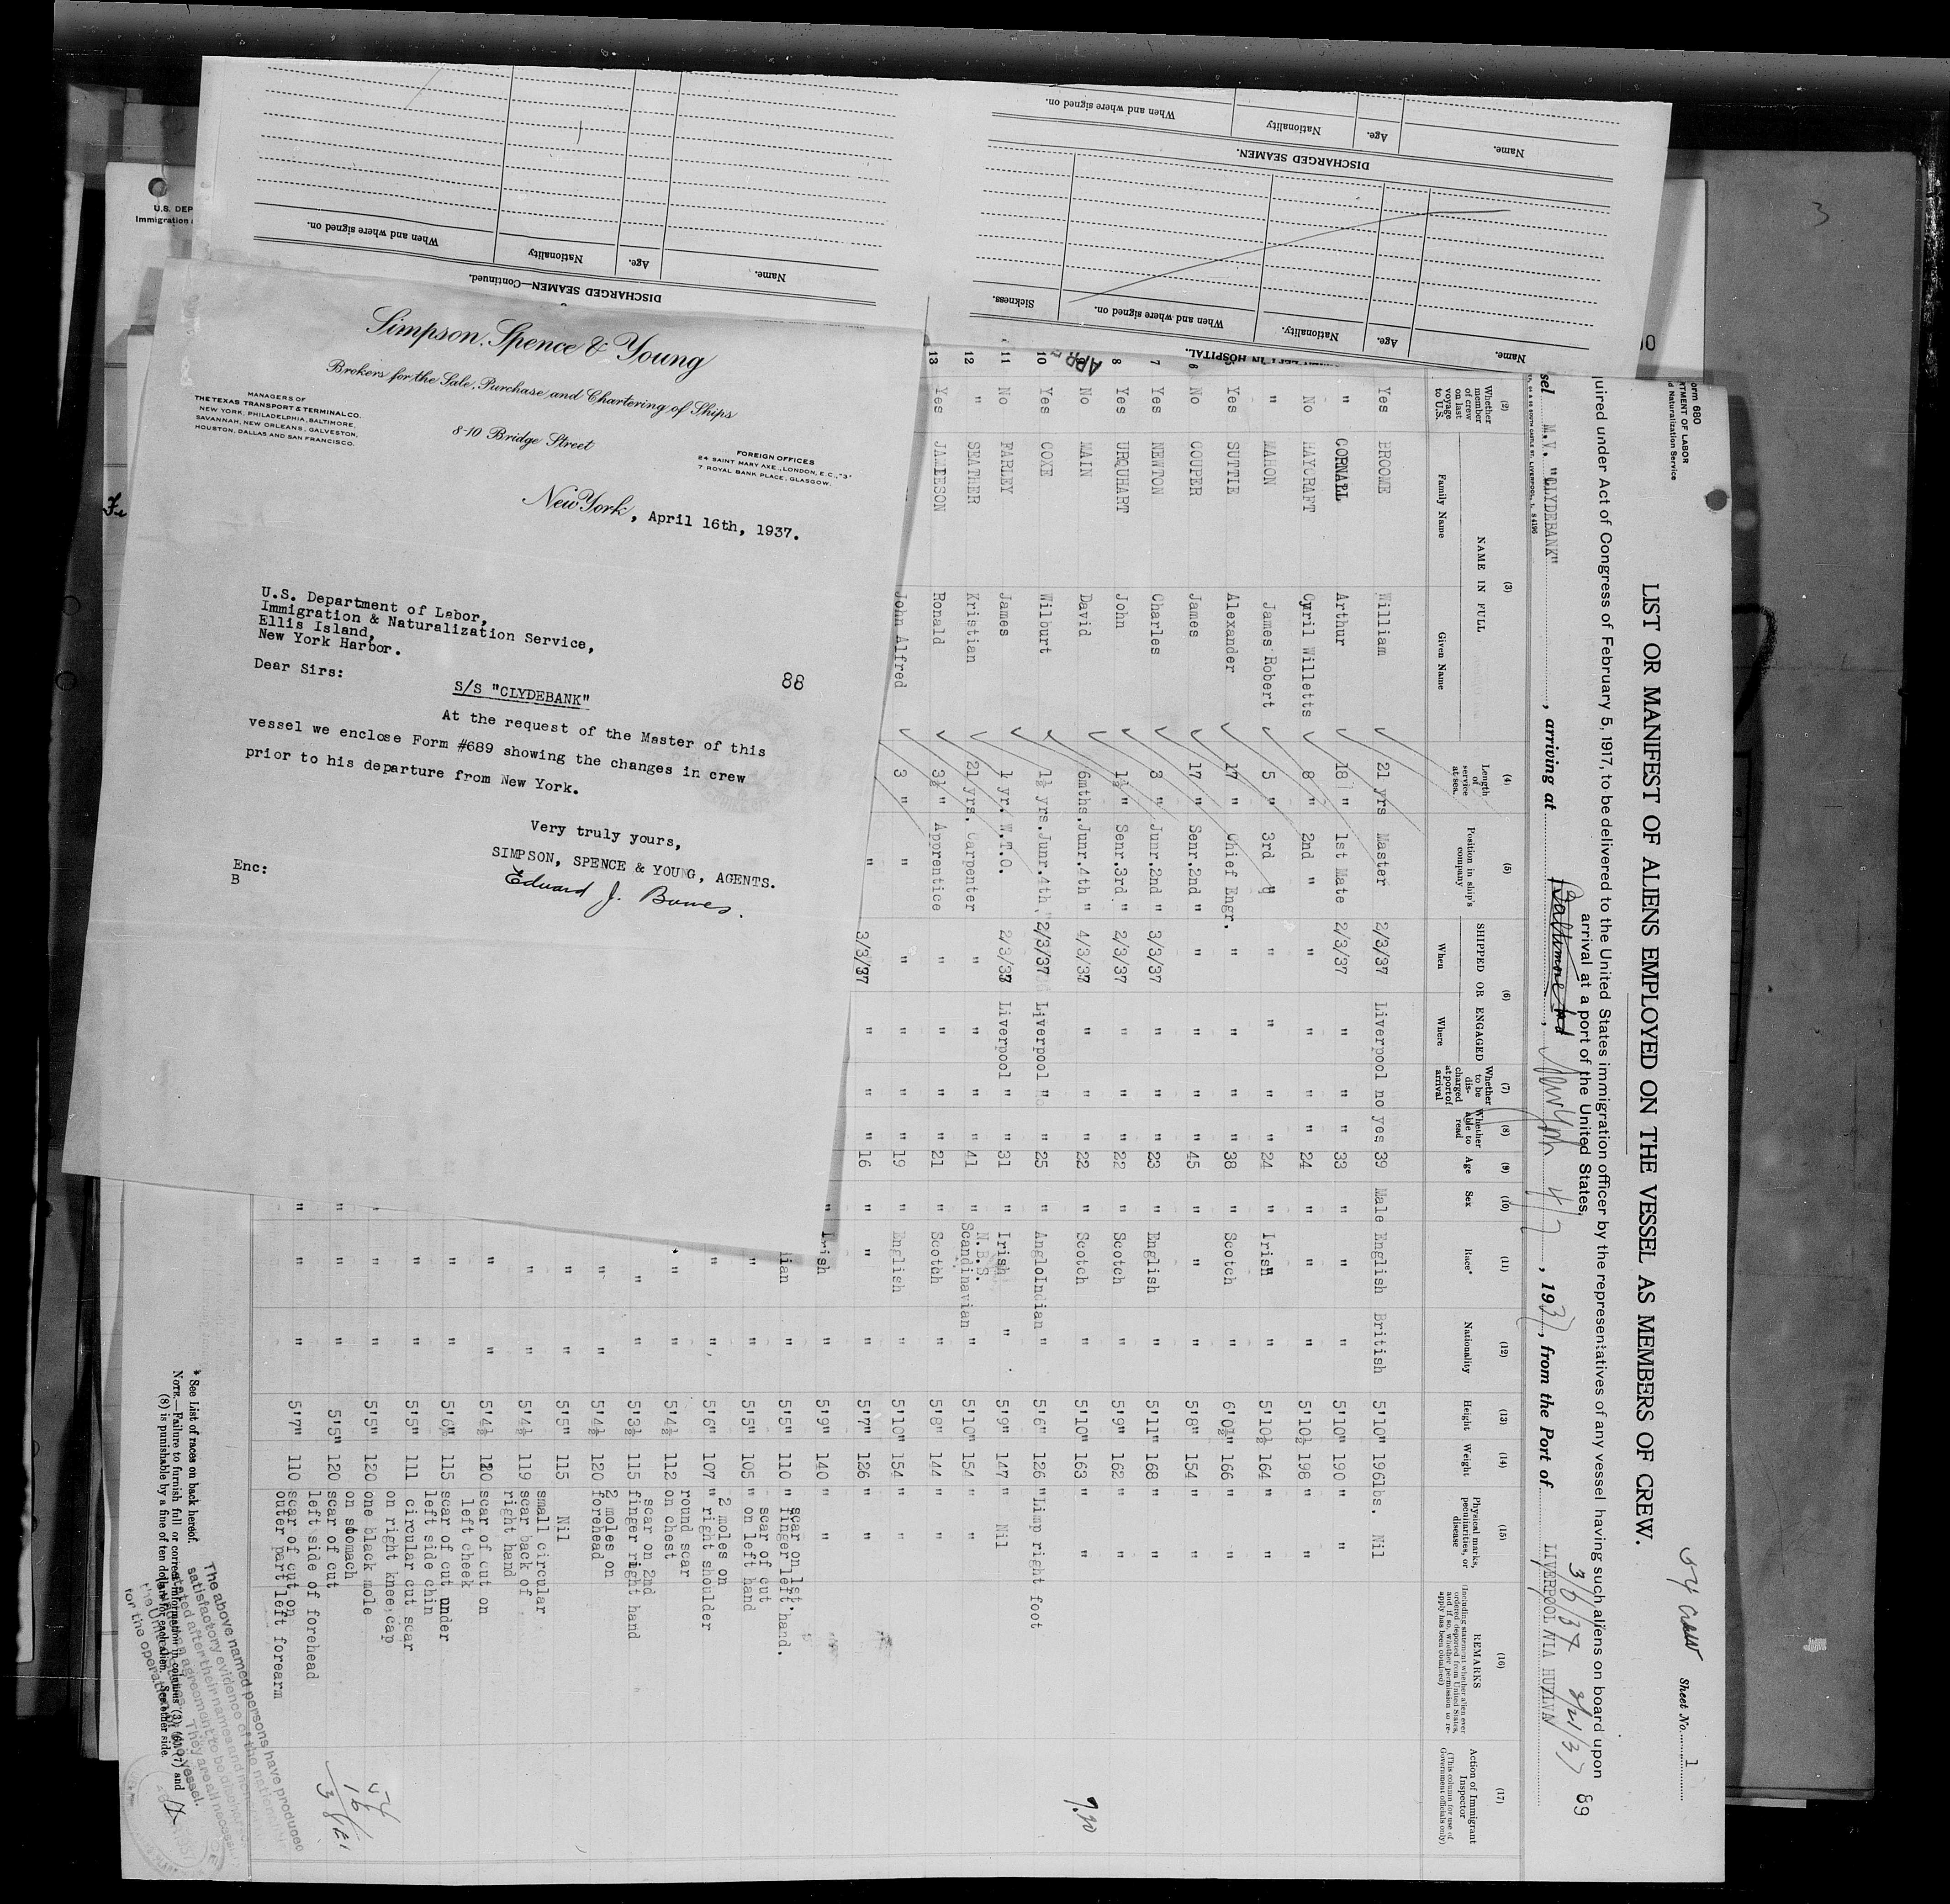 Simpson, Spence & Young
Brokers for the Sale, Purchase and Chartering of Ships
8-10 Bridge Street
MANAGERS OF
THE TEXAS TRANSPORT & TERMINAL CO.
NEW YORK, PHILADELPHIA, BALTIMORE,
SAVANNAH, NEW ORLEANS, GALVESTON,
HOUSTON, DALLAS AND SAN FRANCISCO.
FOREIGN OFFICES
24 SAINT MARY AXE., LONDON, E.C., "3"
7 ROYAL BANK PLACE, GLASGOW.
New York, April 16th, 1937.
U.S. Department of Labor,
Immigration & Naturalization Service,
Ellis Island,
New York Harbor.
Dear Sirs:
88
S/S "CLYDEBANK"
At the request of the Master of this
vessel we enclose Form #689 showing the changes in crew
prior to his departure from New York.
Very truly yours,
SIMPSON, SPENCE & YOUNG, AGENTS.
Edward J. Bowes.
Enc:
B
U.S. DEP
Immigration
DISCHARGED SEAMEN—Continued.
Name. Age. Nationality When and where signed on.
DISCHARGED SEAMEN.
Name. Age. Nationality When and where signed on.
HOSPITAL.
Name. Age. Nationality. When and where signed on. Sickness.
orm 680
RTMENT OF LABOR
d Naturalization Service
Sheet No. 1
LIST OR MANIFEST OF ALIENS EMPLOYED ON THE VESSEL AS MEMBERS OF CREW.
89
uired under Act of Congress of February 5, 1917, to be delivered to the United States immigration officer by the representatives of any vessel having such aliens on board upon
arrival at a port of the United States.
sel M.V. "CLYDEBANK", arriving at Baltimore Md New York 4/7, 1937, from the Port of LIVERPOOL 3/6/37 3/21/37
(2) Whether member of crew on last voyage to U.S.
(3) NAME IN FULL
Family Name Given Name
(4) Length of service at sea.
(5) Position in ship's company
(6) SHIPPED OR ENGAGED
When Where
(7) Whether to be discharged at port of arrival
(8) Whether able to read
(9) Age
(10) Sex
(11) Race*
(12) Nationality
(13) Height
(14) Weight
(15) Physical marks, peculiarities, or disease
(16) REMARKS
(Including statement whether alien ever ordered deported from United States, and if so, whether permission to reapply has been obtained)
(17) Action of Immigrant Inspector
(This column for use of Government officials only)
Yes BROOME William 21 yrs Master 2/3/37 Liverpool no yes 39 Male English British 5'10" 196lbs. Nil
" CORNALL Arthur 18 " 1st Mate 2/3/37 " " " 33 " " " 5'10" 190 "
No HAYCRAFT Cyril Willetts 8 " 2nd " " " " " 24 " " " 5'10½ 198 " "
" MAHON James Robert 5 " 3rd " " " " " 24 " Irish " 5'10½ 164 " "
Yes SUTTIE Alexander 17 " Chief Engr. " " " " 38 " Scotch " 6'0½" 166 " "
6 No COUPER James 17 " Senr.2nd " " " " " 45 " " " 5'8" 154 " "
7 Yes NEWTON Charles 3 " Junr.2nd " 3/3/37 " " " 23 " English " 5'11" 168 " "
8 Yes URQUHART John 1½ " Senr.3rd " 2/3/37 " " " 22 " Scotch " 5'9" 162 " "
No MAIN David 6mths. Junr.4th " 4/3/37 " " " 22 " Scotch " 5'10" 163 " "
10 Yes COXE Wilburt 1½ yrs. Junr.4th " 2/3/37 Liverpool " " 25 " AngloIndian " 5'6" 126 " Limp right foot
11 No FARLEY James 1 yr. W.T.O. 2/3/37 Liverpool " " 31 " Irish " 5'9" 147 Nil
12 " SEATHER Kristian 21 yrs. Carpenter " " " " 41 " N.B.S. Scandinavian " 5'10" 154 " "
13 Yes JAMIESON Ronald 3½ " Apprentice " " " " 21 " Scotch " 5'8" 144 " "
John Alfred 3 " " " " " " 19 " English " 5'10" 154 " "
" 3/3/37 " " " 16 " " " 5'7" 126 " "
" Irish " 5'9" 140 " "
ian " 5'5" 110 " scar on 1st. finger left hand.
" " 5'5" 105 " scar of cut on left hand
" " 5'6" 107 " 2 moles on right shoulder
" " 5'4½ 112 round scar on chest
" " 5'3½ 115 scar on 2nd finger right hand
" " 5'4½ 120 2 moles on forehead
" " 5'5" 115 Nil
" " 5'4½ 119 small circular scar back of right hand
" " 5'4½ 120 scar of cut on left cheek
" " 5'6½ 115 scar of cut under left side chin
" " 5'5" 111 circular cut scar on right knee,cap
" " " 5'5" 120 one black mole on stomach
" " " 5'5" 120 scar of cut left side of forehead
" " " 5'7" 110 scar of cut on outer part left forearm
* See List of races on back hereof.
NOTE.—Failure to furnish full or correct information in columns (3), (6), (7) and
(8) is punishable by a fine of ten dollars for each alien. See other side.
The above named persons have produced
satisfactory evidence of the
after their names and
agreement to be
They are all necessary
for the operation vessel.